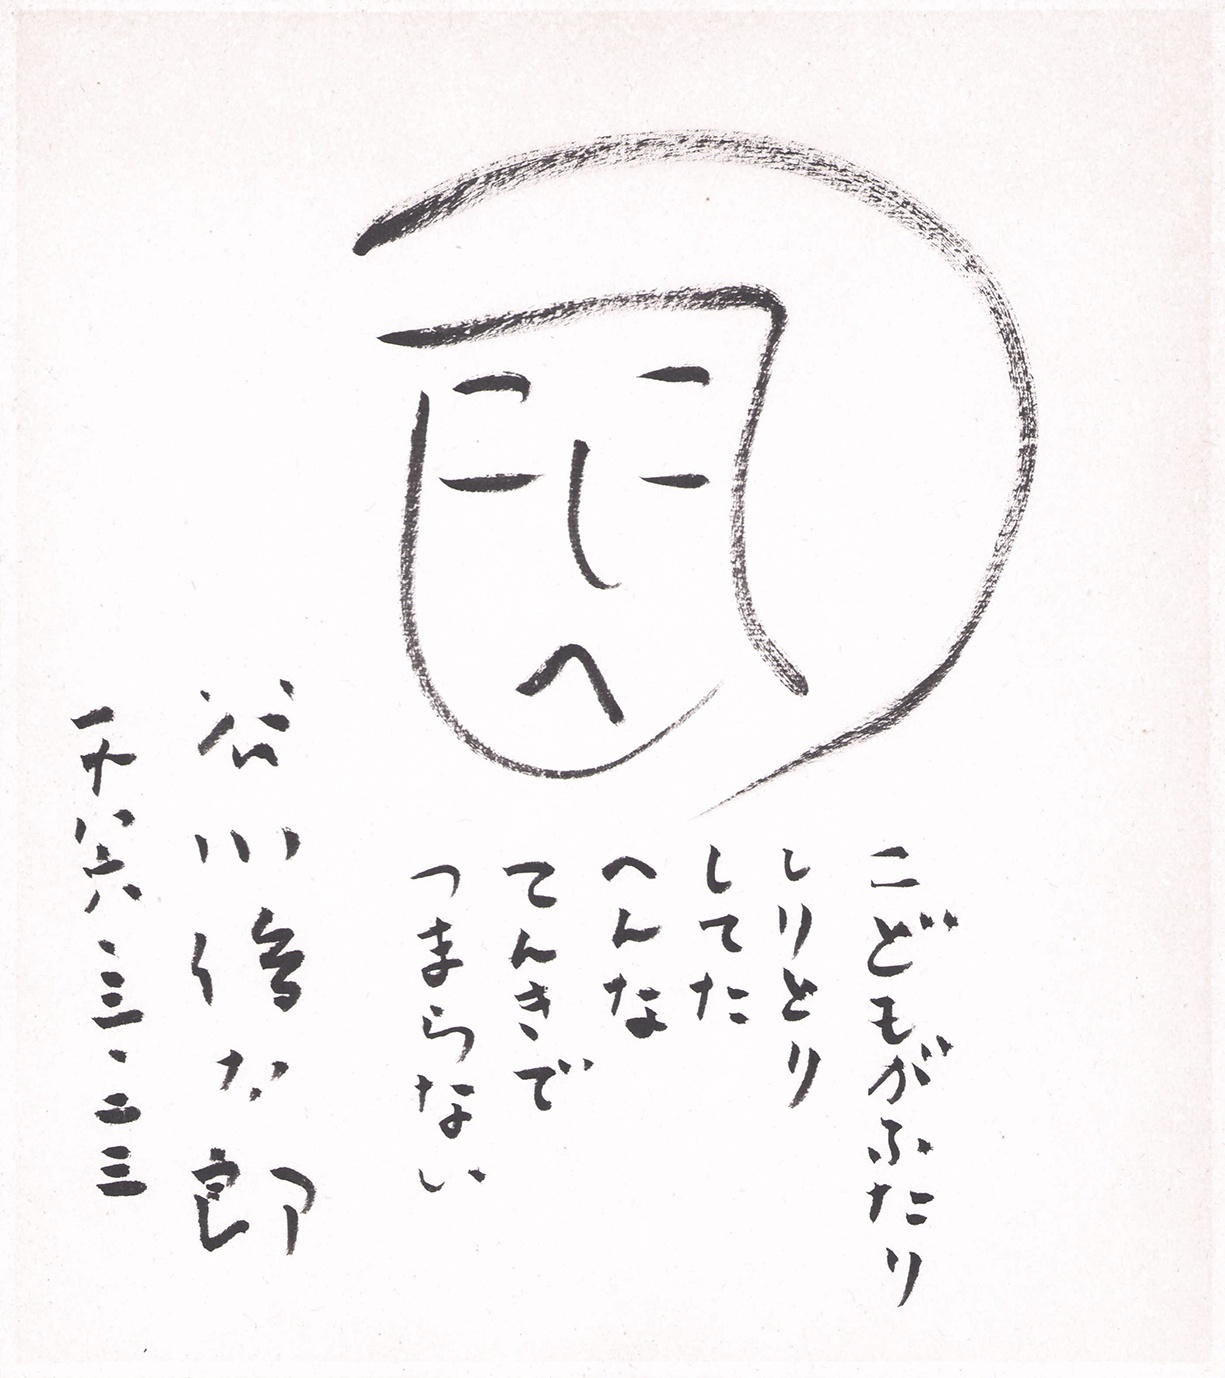 こどもがふたり
しりとり
してた
へんな
てんきで
つまらない
谷川俊太郎